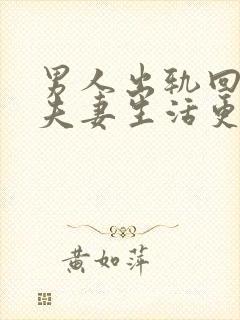 男人出轨回
夫妻生活更
黄如萍